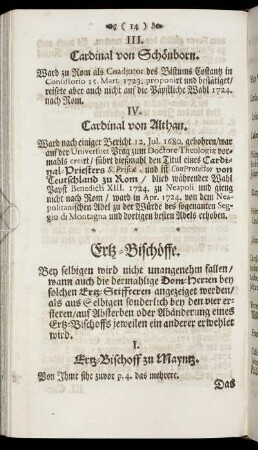 ( 14 )
III.
Cardinal von Schönborn.
Ward zu Rom als Coadjutor des Bistums Costantz in
Consistorio 15. Mart. 1723. proponirt und bestätiget/
reisete aber auch nicht auf die Päpstliche Wahl 1724.
nach Rom.
IV.
Cardinal von Althan.
Ward nach einiger Bericht 12. Jul. 1680. gebohren/war
auf der Universitet Prag zum Doctore Theologiæ vor-
mahls creirt/ führt dießmahl den Titul eines Cardi-
nal-Priesters S. Priscæ, und ist ComProtector von
Teutschland zu Rom/ blieb währender Wahl
Papst Benedicti XIII. 1724. zu Neapoli und gieng
nicht nach Rom/ ward in Apr. 1724. von dem Nea-
politanischen Adel zu der Würde des sogenanten Seg-
gio di Montagna und dortigen besten Adels erhoben.
* * *
Ertz-Bischöffe.
Bey selbigen wird nicht unangenehm fallen/
wann auch die dermahlige Dom-Herren bey
solchen Ertz-Stifferen angezeiget werden/
als aus Selbigen sonderlich bey den vier er-
steren/auf Absterben oder Abänderung eines
Ertz-Bischoffs jeweilen ein anderer erwehlet
wird.
I.
Ertz-Bischoff zu Mayntz.
Von Ihme sihe zuvor p. 4. das mehrere.
Das